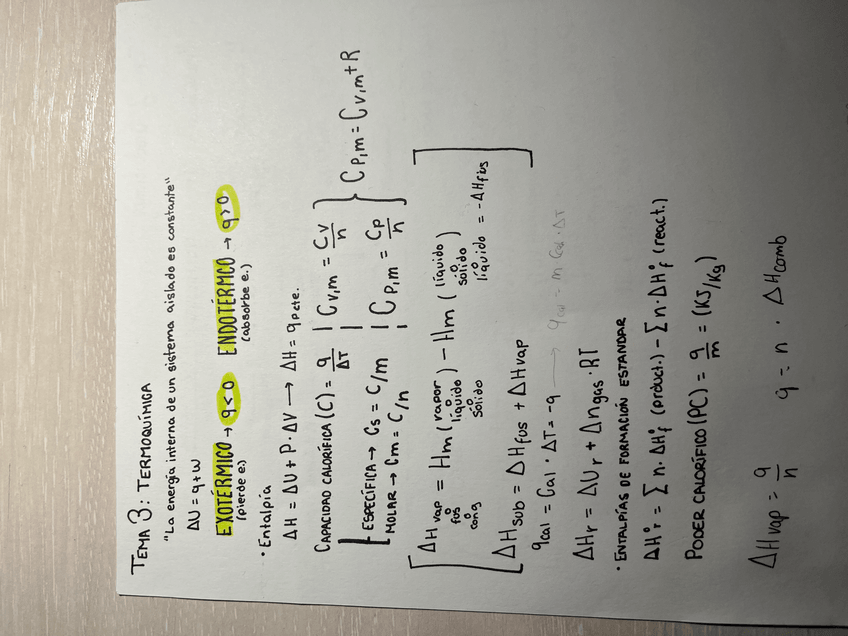 TEMA 3: TERMOQUÍMICA
"La energía interna de un sistema aislado es constante"
ΔU = q+w
EXOTÉRMICO → q<0 ENDOTÉRMICO → q>0
(pierde e.) (absorbe e.)
• Entalpía
ΔH = ΔU + P·ΔV → ΔH = qpcte.
CAPACIDAD CALORÍFICA (C) = q/ΔT | Cv,m = Cv/n
ESPECÍFICA → Cs = C/m | Cp,m = Cp/n } Cp,m = Cv,m + R
MOLAR → Cm = C/n
ΔH vap = Hm (vapor) − Hm (líquido)
o fus o líquido o sólido
o cong o sólido o líquido = −ΔHfus
ΔHsub = ΔHfus + ΔHvap
qcal = Cal · ΔT = −q → qcal = m Cal · ΔT
ΔHr = ΔUr + Δngas · RT
• ENTALPÍAS DE FORMACIÓN ESTANDAR
ΔH°r = Σ n·ΔH°f (product.) − Σ n·ΔH°f (react.)
PODER CALORÍFICO (PC) = q/m = (KJ/Kg)
ΔHvap = q/n q = n · ΔHcomb